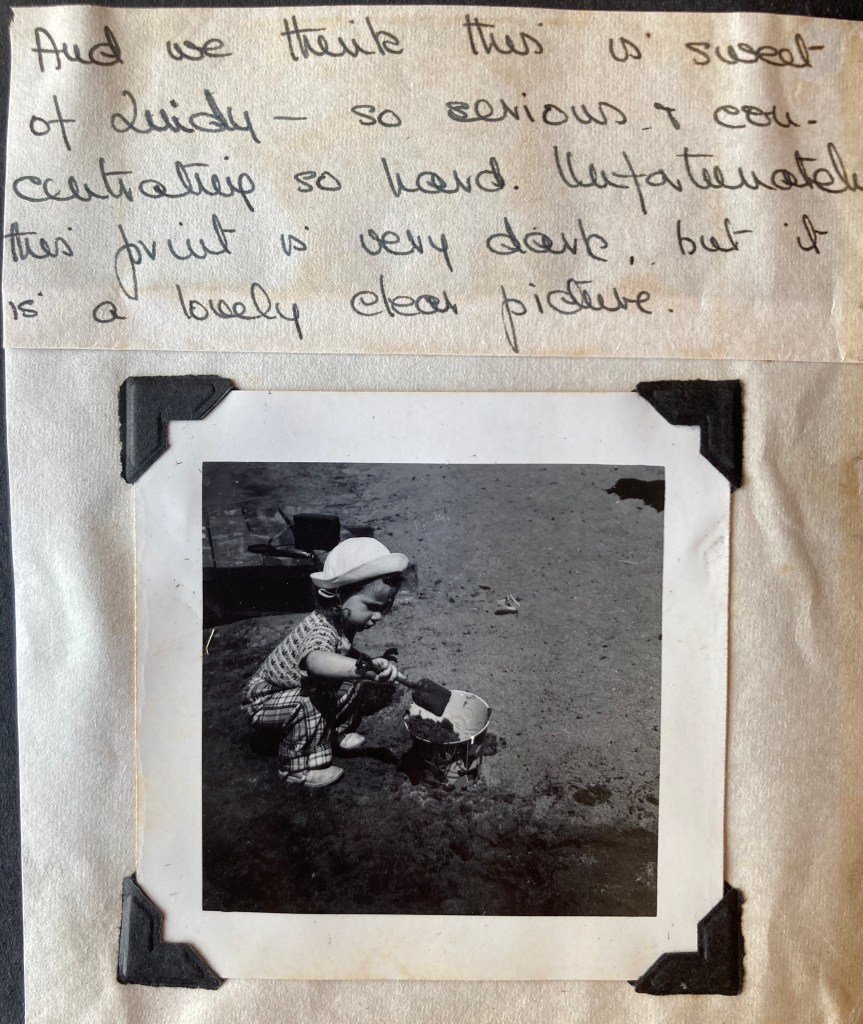 And we think this is sweet
of Lindy – so serious & con-
centrating so hard. Unfortunately
this print is very dark, but it
is a lovely clear picture.